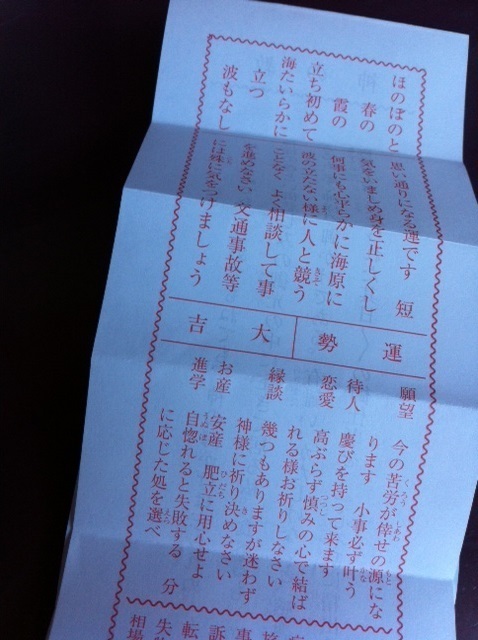 ほのぼのと
春の
霞の
立ち初めて
海たいらかに
立つ
波もなし
思い通りになる運です 短
気をいましめ身を正しくし
何事にも心平らかに海原に
波の立たない様に人と競う
ことなく よく相談して事
を進めなさい 交通事故等
には殊に気をつけましょう
運勢
大吉
願望 今の苦労が倖せの源にな
ります 小事必ず叶う
待人 慶びを持って来ます
恋愛 高ぶらず慎みの心で結ば
れる様お祈りしなさい
縁談 幾つもありますが迷わず
神様に祈り決めなさい
お産 安産 肥立に用心せよ
進学 自惚れると失敗する 分
に応じた処を選べ
事
訴
転
失
相場